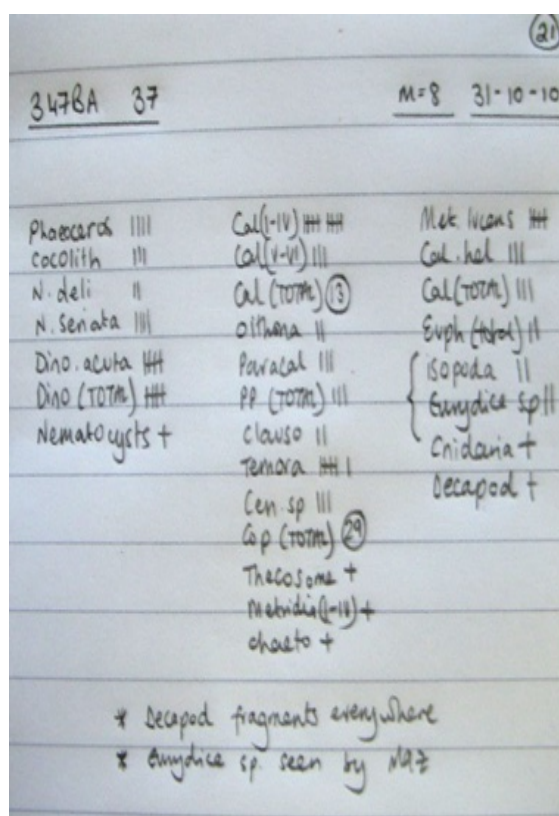 21
347BA 37 M=8 31-10-10
Phaeoceros ||||
Cocolith |||
N. deli ||
N. seriata ||||
Dino. acuta 卌
Dino (TOTAL) 卌
Nematocysts +
Cal (I-IV) 卌 卌
Cal (V-VI) |||
Cal (TOTAL) 13
Oithona ||
Paracal |||
PP (TOTAL) |||
Clauso ||
Temora 卌 |
Cen. sp |||
Cop (TOTAL) 29
Thecosome +
Metridia (I-IV) +
chaeto +
Met. lucens 卌
Cal. hel |||
Cal (TOTAL) |||
Euph (total) ||
isopoda ||
Eurydice sp ||
Cnidaria +
Decapod +
* Decapod fragments everywhere
* Eurydice sp. seen by